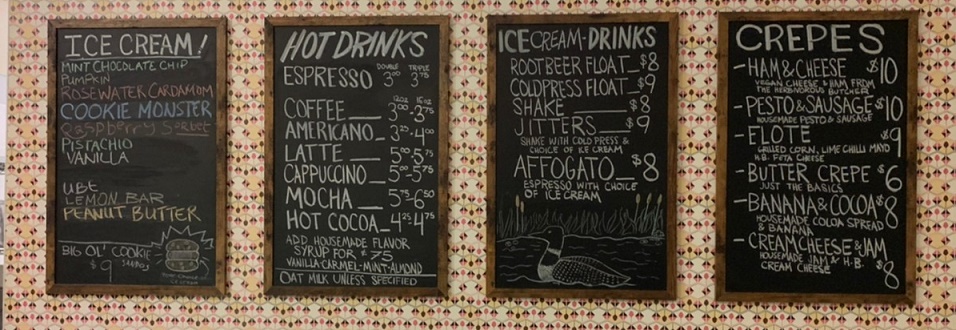 ICE CREAM!
MINT CHOCOLATE CHIP
PUMPKIN
ROSEWATER CARDAMOM
COOKIE MONSTER
Raspberry Sorbet
PISTACHIO
VANILLA
UBE
LEMON BAR
PEANUT BUTTER
BIG OL' COOKIE
$9
HOT DRINKS
DOUBLE TRIPLE
ESPRESSO 3.00 3.75
12oz 16oz
COFFEE 3.00-3.75
AMERICANO 3.25-4.00
LATTE 5.00-5.75
CAPPUCCINO 5.00-5.75
MOCHA 5.75-6.50
HOT COCOA 4.25-4.75
ADD HOUSEMADE FLAVOR
SYRUP FOR $.75
VANILLA-CARMEL-MINT-ALMOND
OAT MILK UNLESS SPECIFIED
ICE CREAM-DRINKS
ROOTBEER FLOAT $8
COLDPRESS FLOAT $9
SHAKE $8
JITTERS $9
SHAKE WITH COLD PRESS &
CHOICE OF ICE CREAM
AFFOGATO $8
ESPRESSO WITH CHOICE
OF ICE CREAM
CREPES
-HAM & CHEESE $10
VEGAN CHEESE & HAM FROM
THE HERBIVOROUS BUTCHER
-PESTO & SAUSAGE $10
HOUSEMADE PESTO & SAUSAGE
-ELOTE $9
GRILLED CORN, LIME CHILLI MAYO
H.B. FETA CHEESE
-BUTTER CREPE $6
JUST THE BASICS
-BANANA & COCOA $8
HOUSEMADE COCOA SPREAD
& BANANA
-CREAMCHEESE & JAM $8
HOUSEMADE JAM & H.B.
CREAM CHEESE